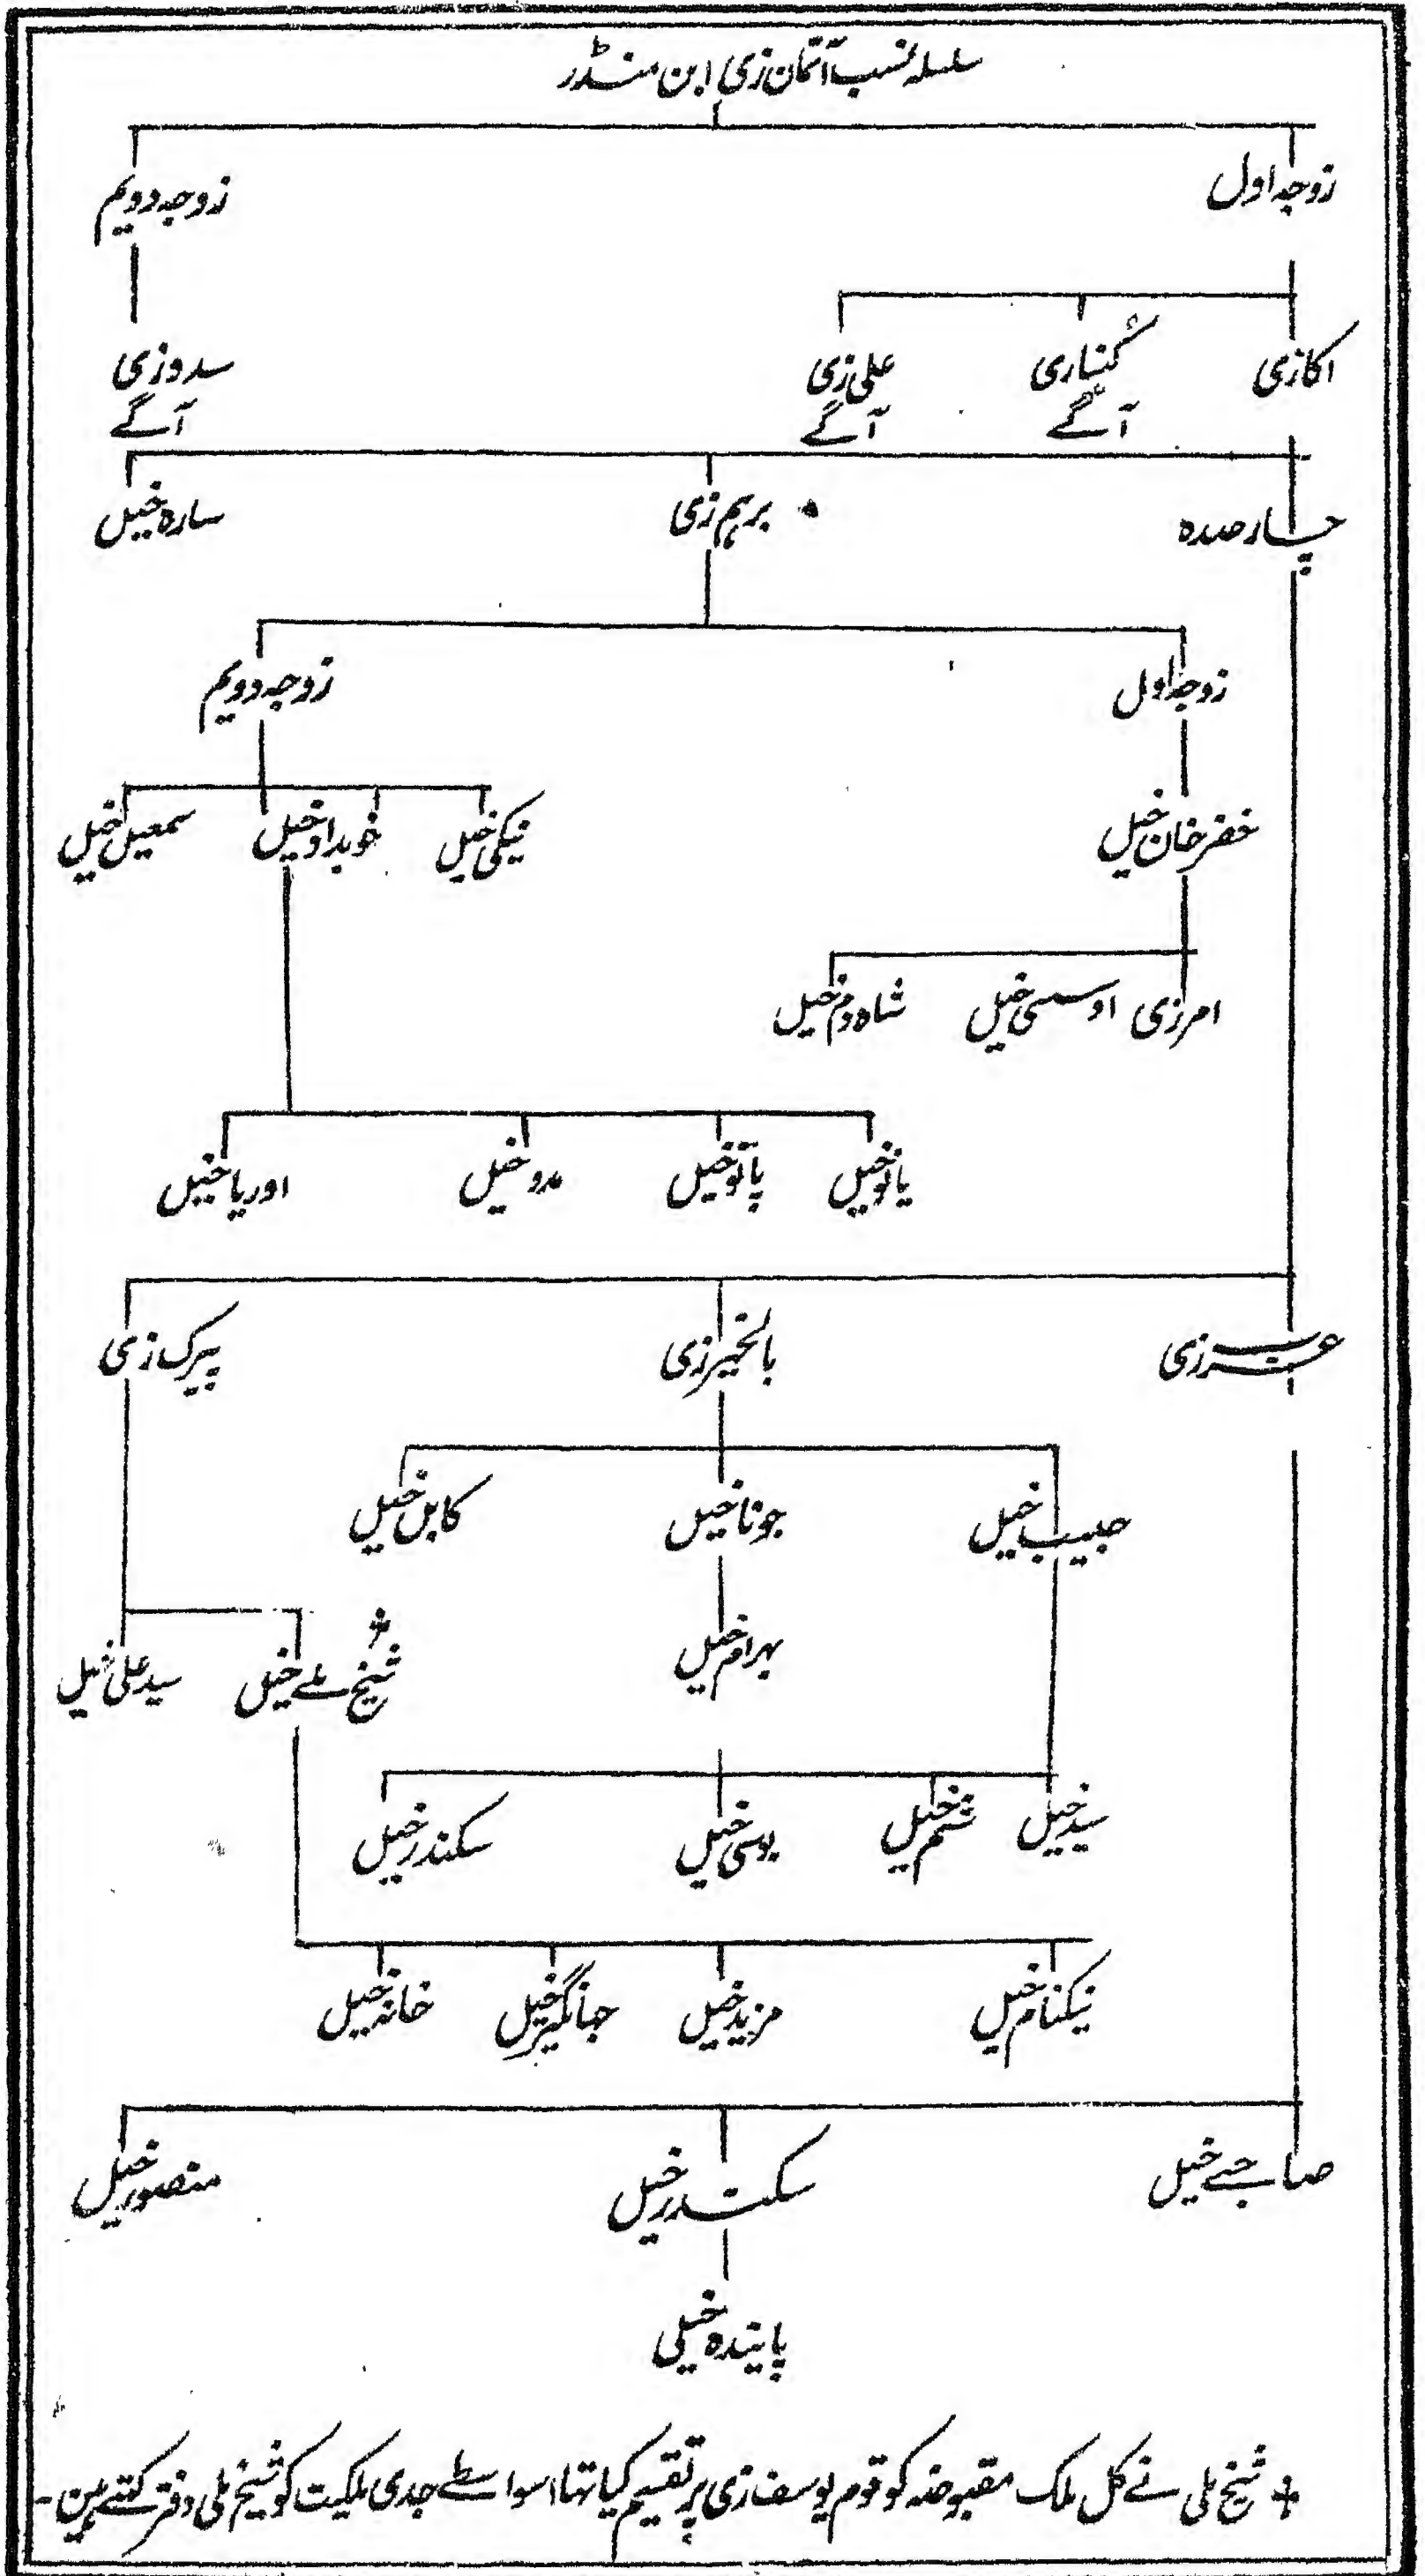 سلسلہ نسب آتمان زی ابن منڈر
زوجہ اول زوجہ دویم
اکازی کنازی علی زی سدوزی
آگے آگے آگے
چارصدہ برہم زی سارہ خیل
زوجہ اول زوجہ دویم
خضر خان خیل نیکی خیل خویداد خیل سمعیل خیل
امرزی اوسی خیل شاہ دم خیل
یانو خیل پاتو خیل مدو خیل اوریا خیل
عزب زی بالخیر زی پیرک زی
حبیب خیل جونا خیل کابل خیل
بہرام خیل شیخ ملے خیل سید علی خیل
سید خیل شم خیل یوسی خیل سکندر خیل
نیکنام خیل مزید خیل جہانگیر خیل خانہ خیل
صاحبے خیل سکندر خیل منصور خیل
پایندہ خیل
+ شیخ ملی نے کل ملک مقبوضہ کو قوم یوسف زی پر تقسیم کیا تہا اسواسطے جدی ملکیت کو شیخ ملی دفتر کہتے ہین۔